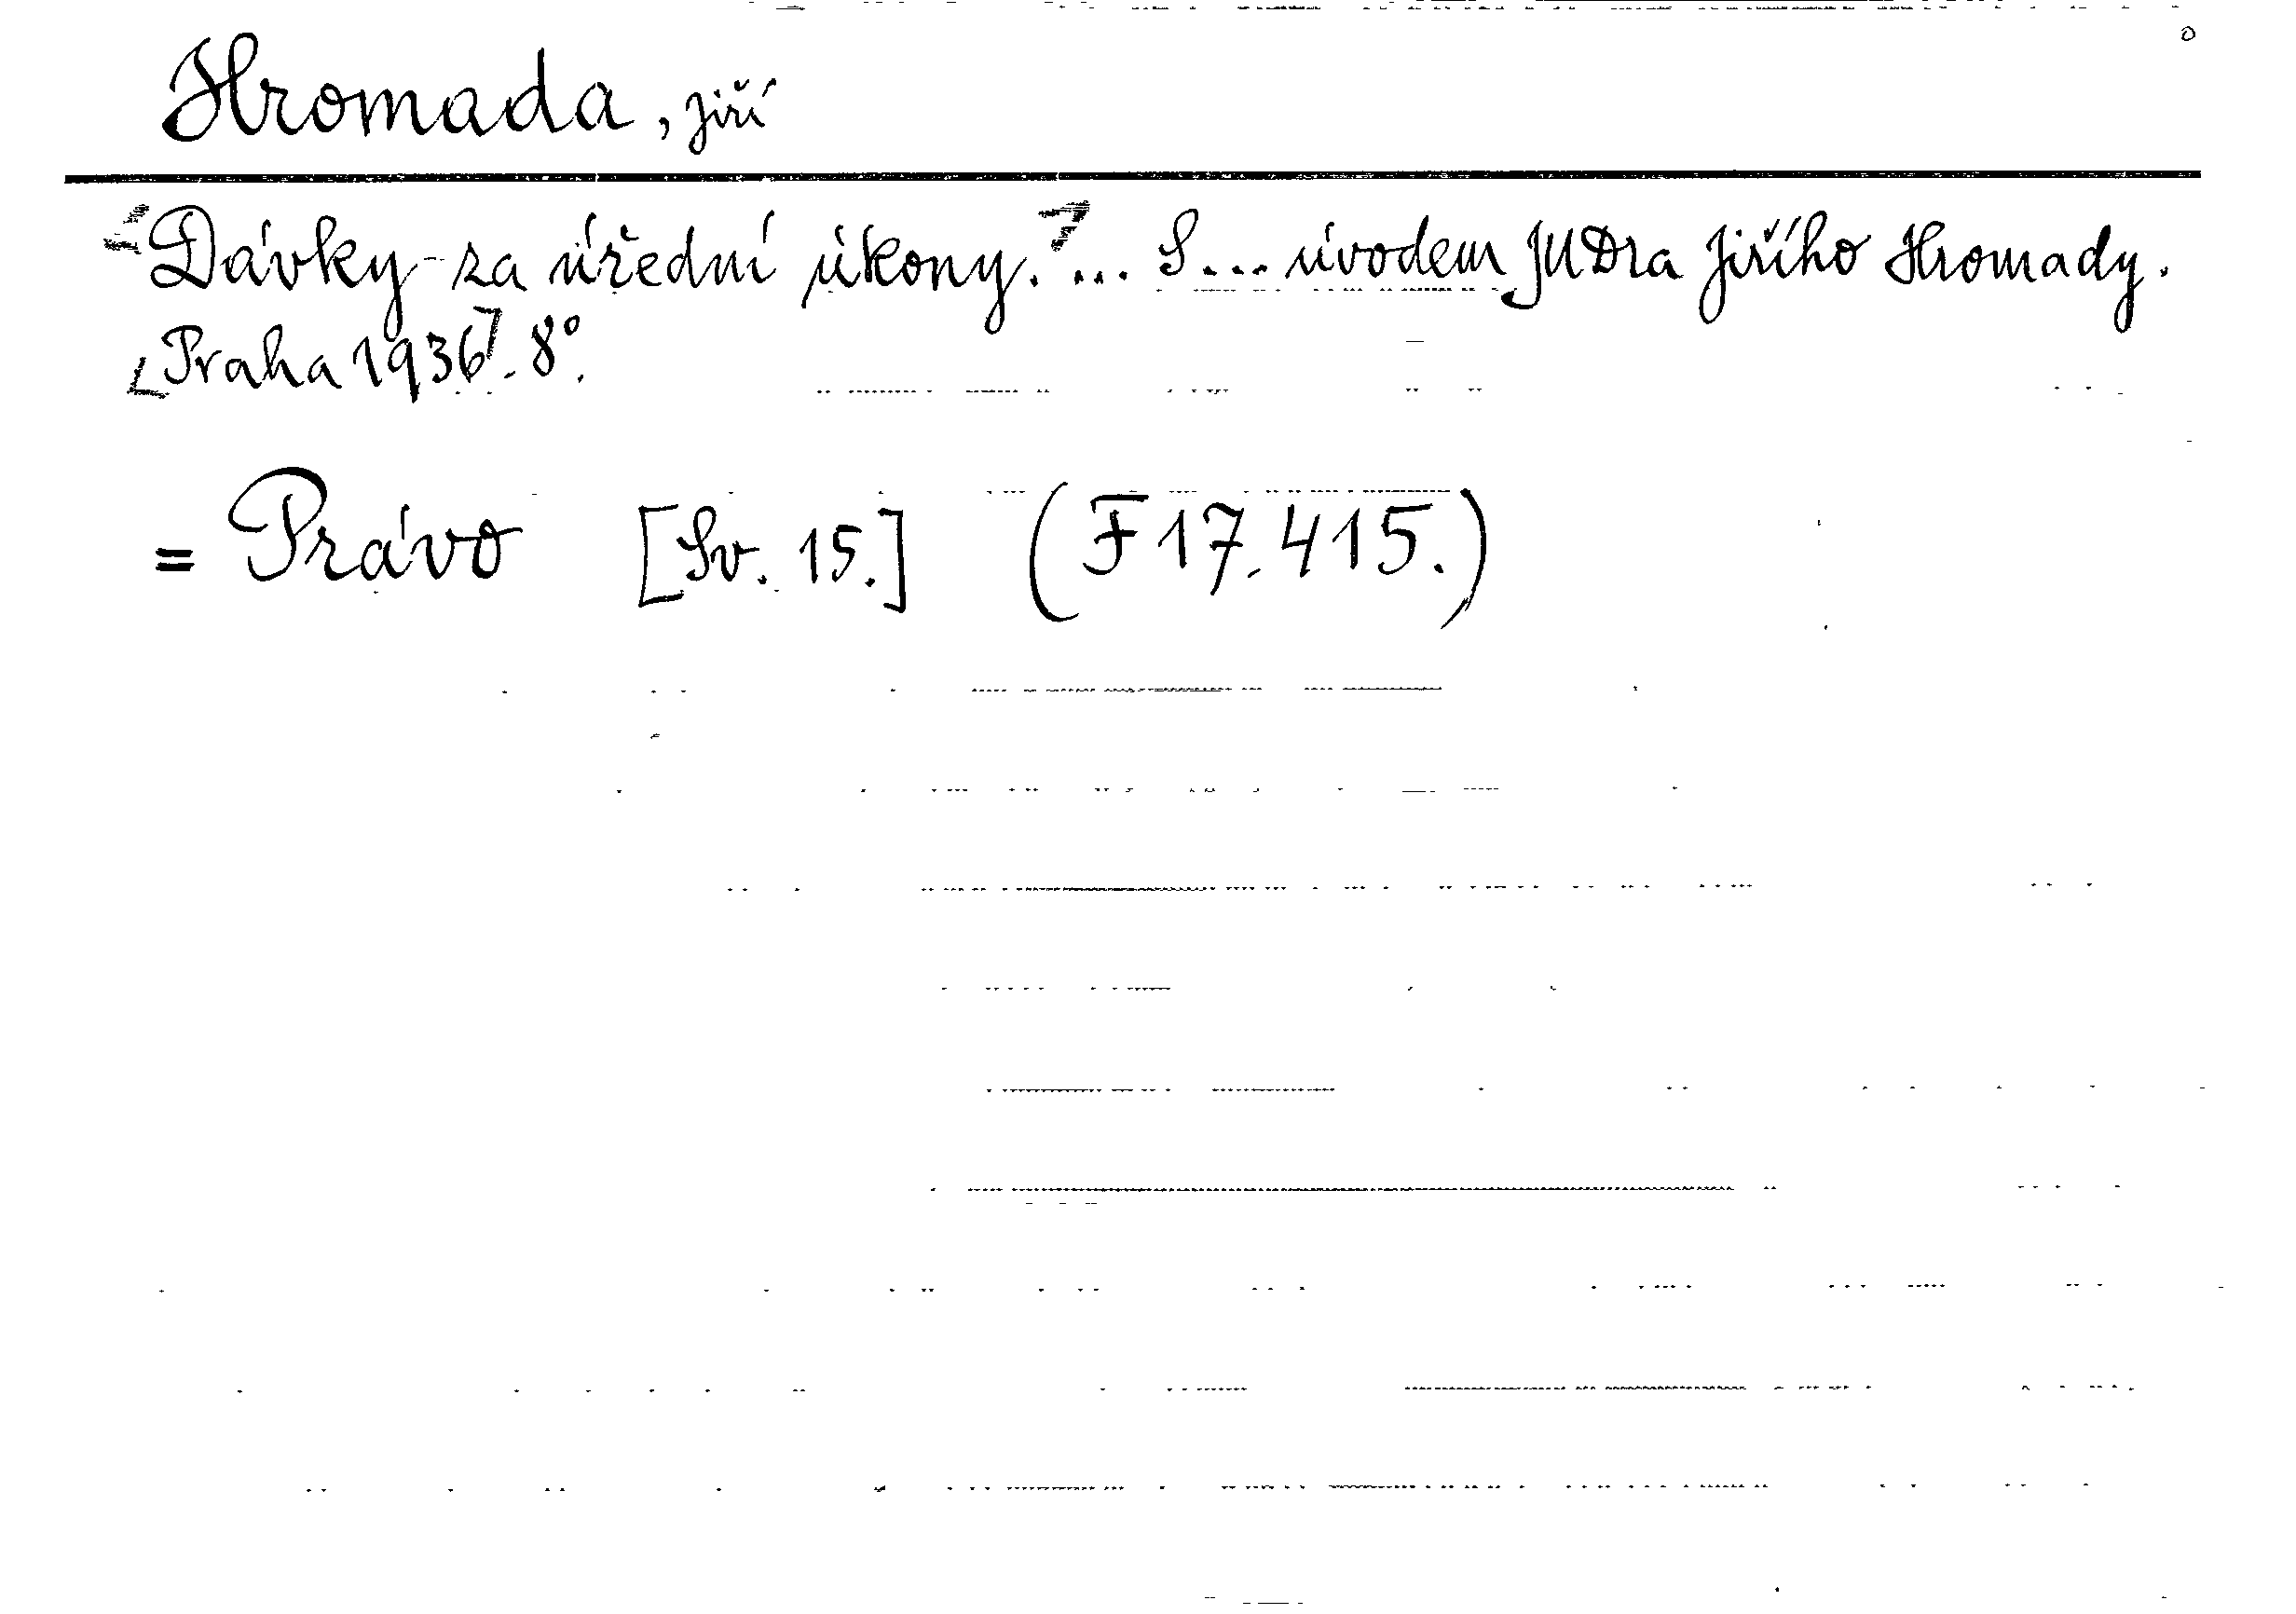 Hromada, Jiří
[Dávky za úřední úkony.] ... S ... úvodem JUDra Jiřího Hromady.
[Praha 1936]. 8°.
= Právo [Sv. 15.] (F 17.415.)